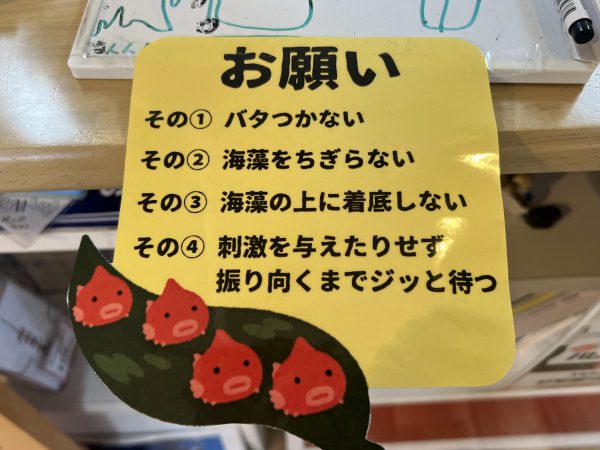 お願い
その① バタつかない
その② 海藻をちぎらない
その③ 海藻の上に着底しない
その④ 刺激を与えたりせず
振り向くまでジッと待つ